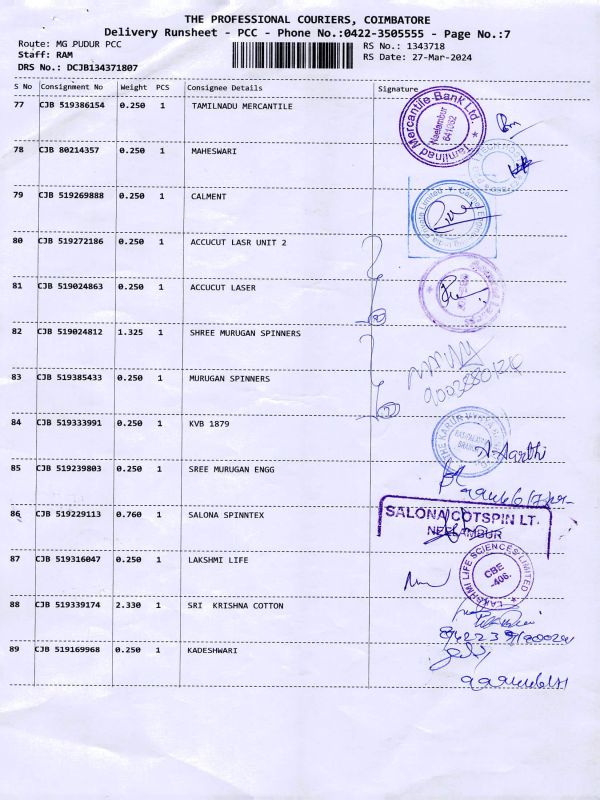 THE PROFESSIONAL COURIERS, COIMBATORE
Delivery Runsheet - PCC - Phone No.:0422-3505555 - Page No.:7
Route: MG PUDUR PCC RS No.: 1343718
Staff: RAM RS Date: 27-Mar-2024
DRS No.: DCJB134371807
S No Consignment No Weight PCS Consignee Details Signature
77 CJB 519386154 0.250 1 TAMILNADU MERCANTILE
Tamilnad Mercantile Bank Ltd.
Neelambur
641062
78 CJB 80214357 0.250 1 MAHESWARI
79 CJB 519269888 0.250 1 CALMENT
80 CJB 519272186 0.250 1 ACCUCUT LASR UNIT 2
81 CJB 519024863 0.250 1 ACCUCUT LASER
82 CJB 519024812 1.325 1 SHREE MURUGAN SPINNERS
83 CJB 519385433 0.250 1 MURUGAN SPINNERS
84 CJB 519333991 0.250 1 KVB 1879
THE KARUR VYSYA BANK
A. Aarthi
85 CJB 519239803 0.250 1 SREE MURUGAN ENGG
86 CJB 519229113 0.760 1 SALONA SPINNTEX
SALONA COTSPIN LT.
NEELAMBUR
87 CJB 519316047 0.250 1 LAKSHMI LIFE
LAKSHMI LIFE SCIENCES LIMITED
CBE
-406.
88 CJB 519339174 2.330 1 SRI KRISHNA COTTON
89 CJB 519169968 0.250 1 KADESHWARI